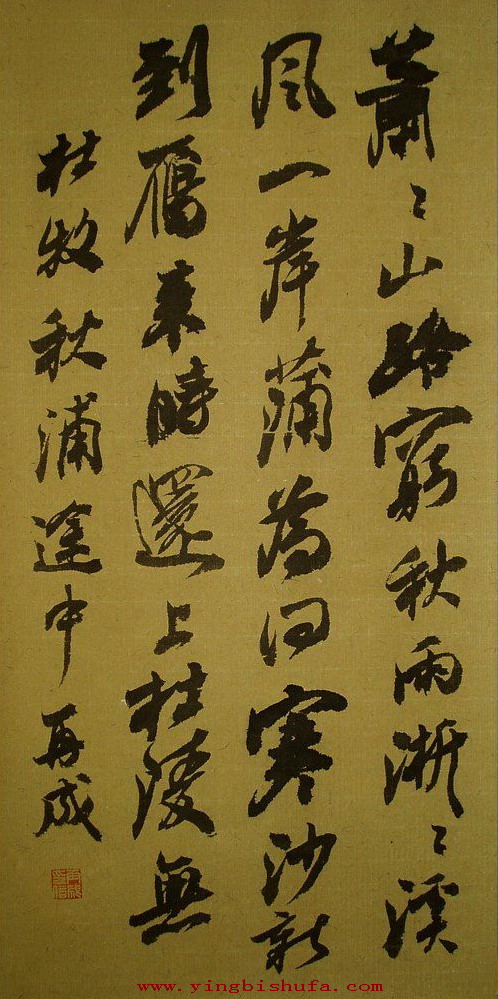 蕭〻山路窮秋雨淅〻溪
風一岸蒲為问寒沙新
到雁来時還上杜陵無
杜牧秋浦途中 再成
www.yingbishufa.com